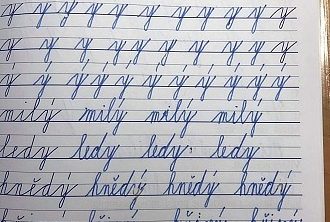 y y y y y y y y y y y
y y y y y y y y y y y
ý ý ý ý ý ý ý ý ý ý ý
milý milý milý milý
ledy ledy ledy ledy
hnědý hnědý hnědý hnědý